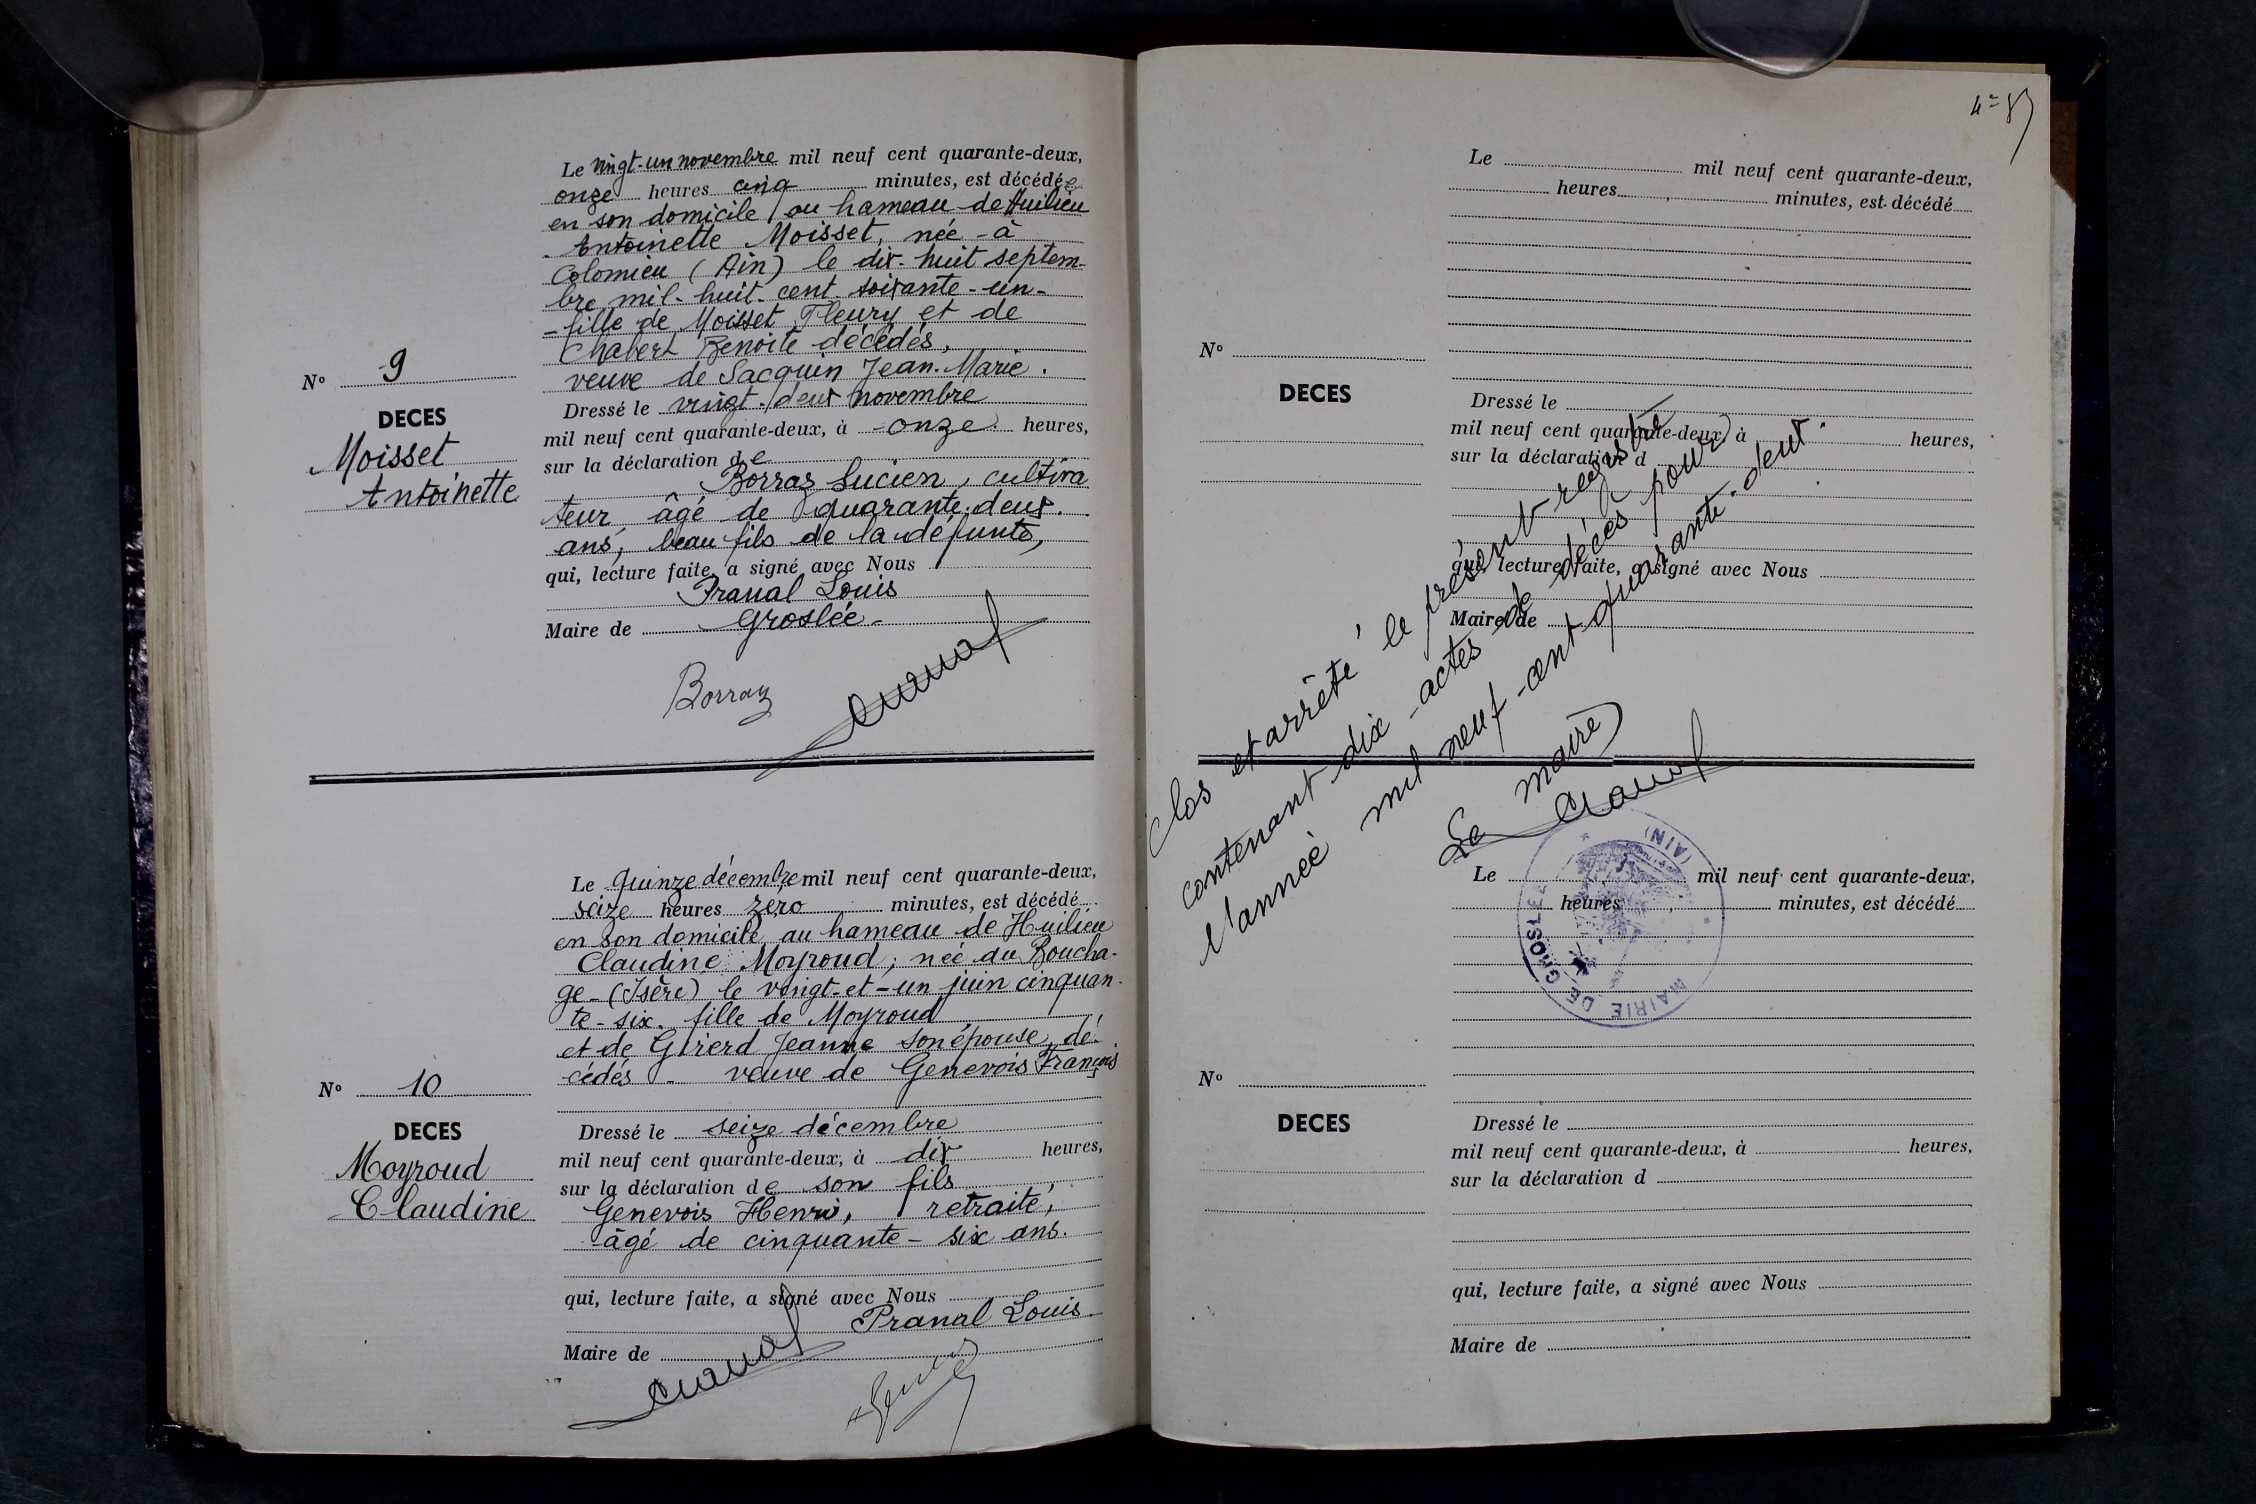 Le vingt-un novembre mil neuf cent quarante-deux,
onze heures cinq minutes, est décédée
en son domicile au hameau de Huilieu
Antoinette Moisset, née à
Colomieu (Ain) le dix-huit septem-
bre mil-huit-cent soixante-un-
-fille de Moisset Fleury et de
Chabert Benoite décédés,
veuve de Sacquin Jean-Marie.
N° 9
DECES
Moisset
Antoinette
Dressé le vingt-deux novembre
mil neuf cent quarante-deux, à onze heures,
sur la déclaration de
Borraz Lucien, cultiva
teur, âgé de quarante-deux
ans, beau fils de la défunte,
qui, lecture faite, a signé avec Nous
Pranal Louis
Maire de Groslée-
Borraz
Pranal
Le quinze décembre mil neuf cent quarante-deux,
seize heures zéro minutes, est décédé
en son domicile au hameau de Huilieu
Claudine Moyroud, née au Boucha-
ge-(Isère) le vingt-et-un juin cinquan-
te-six. fille de Moyroud
et de Girerd Jeanne son épouse, dé-
cédés - veuve de Genevois François
N° 10
DECES
Moyroud
Claudine
Dressé le seize décembre
mil neuf cent quarante-deux, à dix heures,
sur la déclaration de son fils,
Genevois Henri, retraité,
âgé de cinquante-six ans.
qui, lecture faite, a signé avec Nous
Pranal Louis
Maire de
Pranal
Le mil neuf cent quarante-deux,
heures minutes, est décédé
N°
DECES
Dressé le
mil neuf cent quarante-deux, à heures,
sur la déclaration d
qui, lecture faite, a signé avec Nous
Maire de
Clos et arrêté le présent registre
contenant dix actes de décès pour
l'année mil neuf-cent quarante-deux.
Le maire
Pranal
MAIRIE DE GROSLÉE (AIN)
Le mil neuf cent quarante-deux,
heures minutes, est décédé
N°
DECES
Dressé le
mil neuf cent quarante-deux, à heures,
sur la déclaration d
qui, lecture faite, a signé avec Nous
Maire de